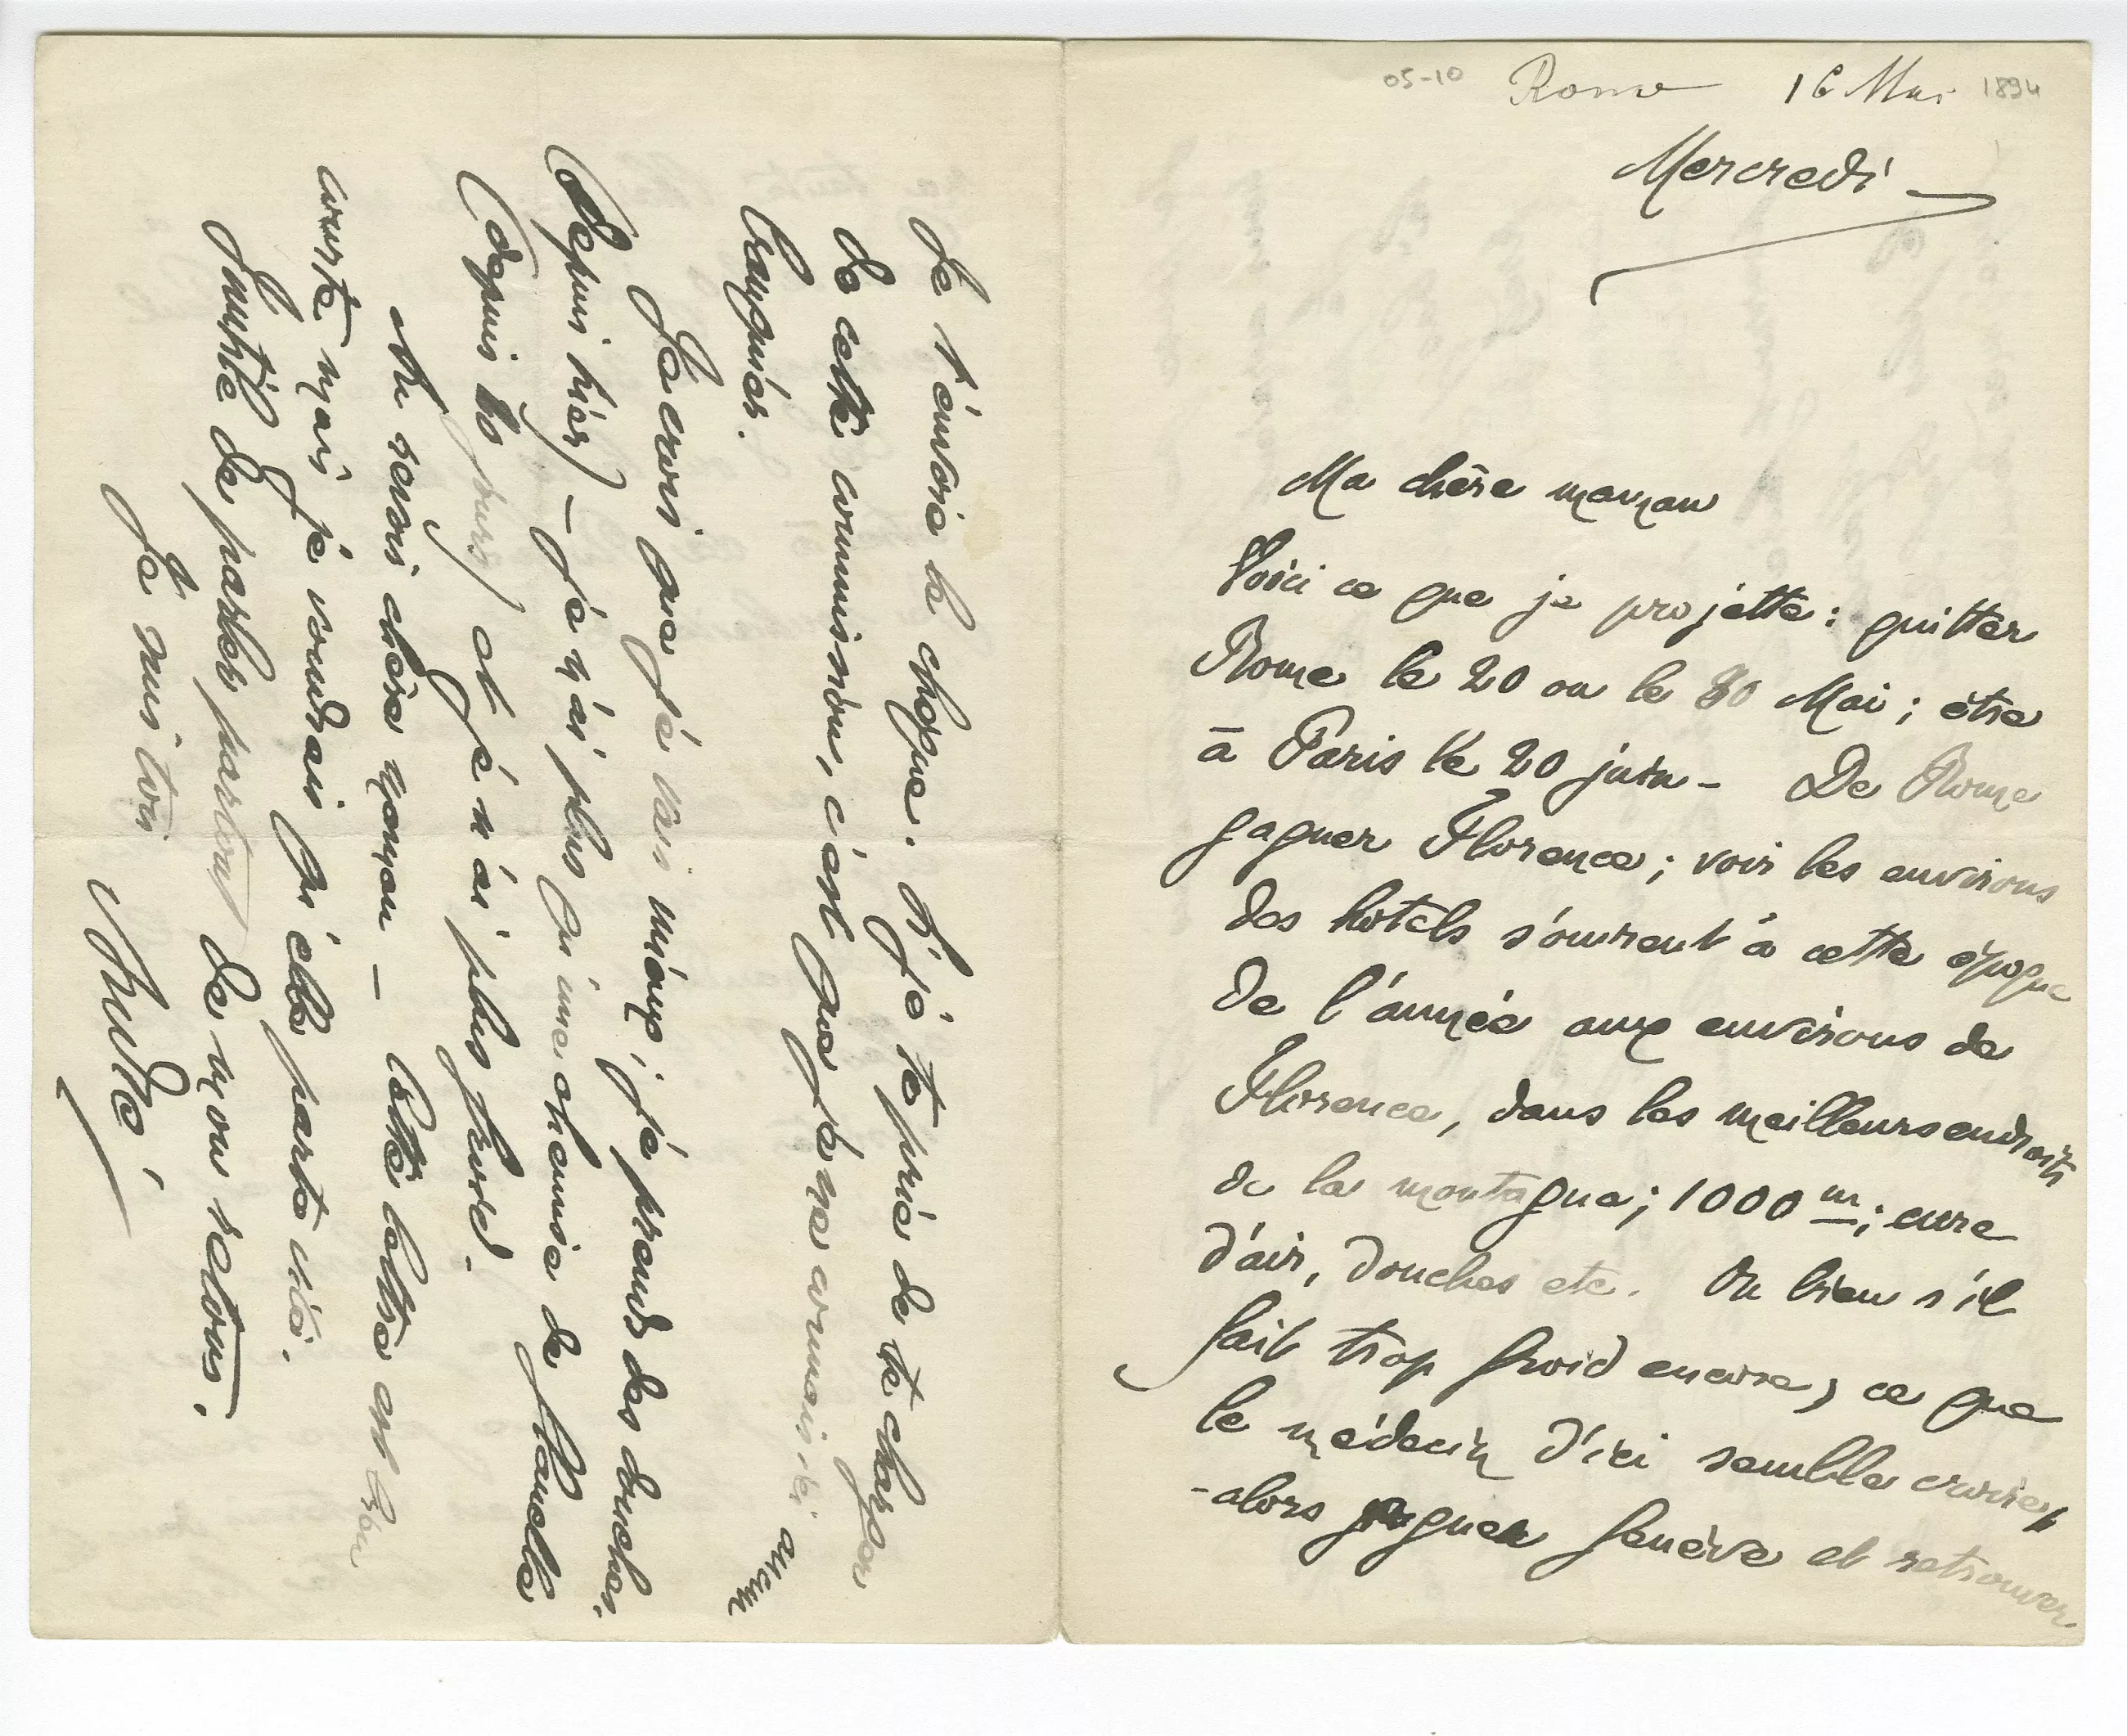 05-10 Rome 16 Mai 1894
Mercredi
Ma chère maman
Voici ce que je projette : quitter
Rome le 20 ou le 30 Mai ; être
à Paris le 20 juin - De Rome
gagner Florence ; voir les environs
des hôtels s'ouvrent à cette époque
de l'année aux environs de
Florence, dans les meilleurs endroits
de la montagne ; 1000 m ; cure
d'air, douches etc. Ou bien s'il
fait trop froid encore, ce que
le médecin d'ici semble croire,
- alors gagner Genève et retrouver
Je t'envoie le chèque. Si je te prie de te charger
de cette commission, c'est que je ne connais ici aucun
banquier.
Je crois que je vais mieux ; je prends des douches.
(depuis hier) - je n'ai plus qu'une chemise de flanelle
(depuis 10 jours) et je n'ai plus froid.
Au revoir chère maman - Cette lettre est bien
courte mais je voudrais qu'elle parte vite.
Inutile de parler partout de mon retour.
Je suis ton
André